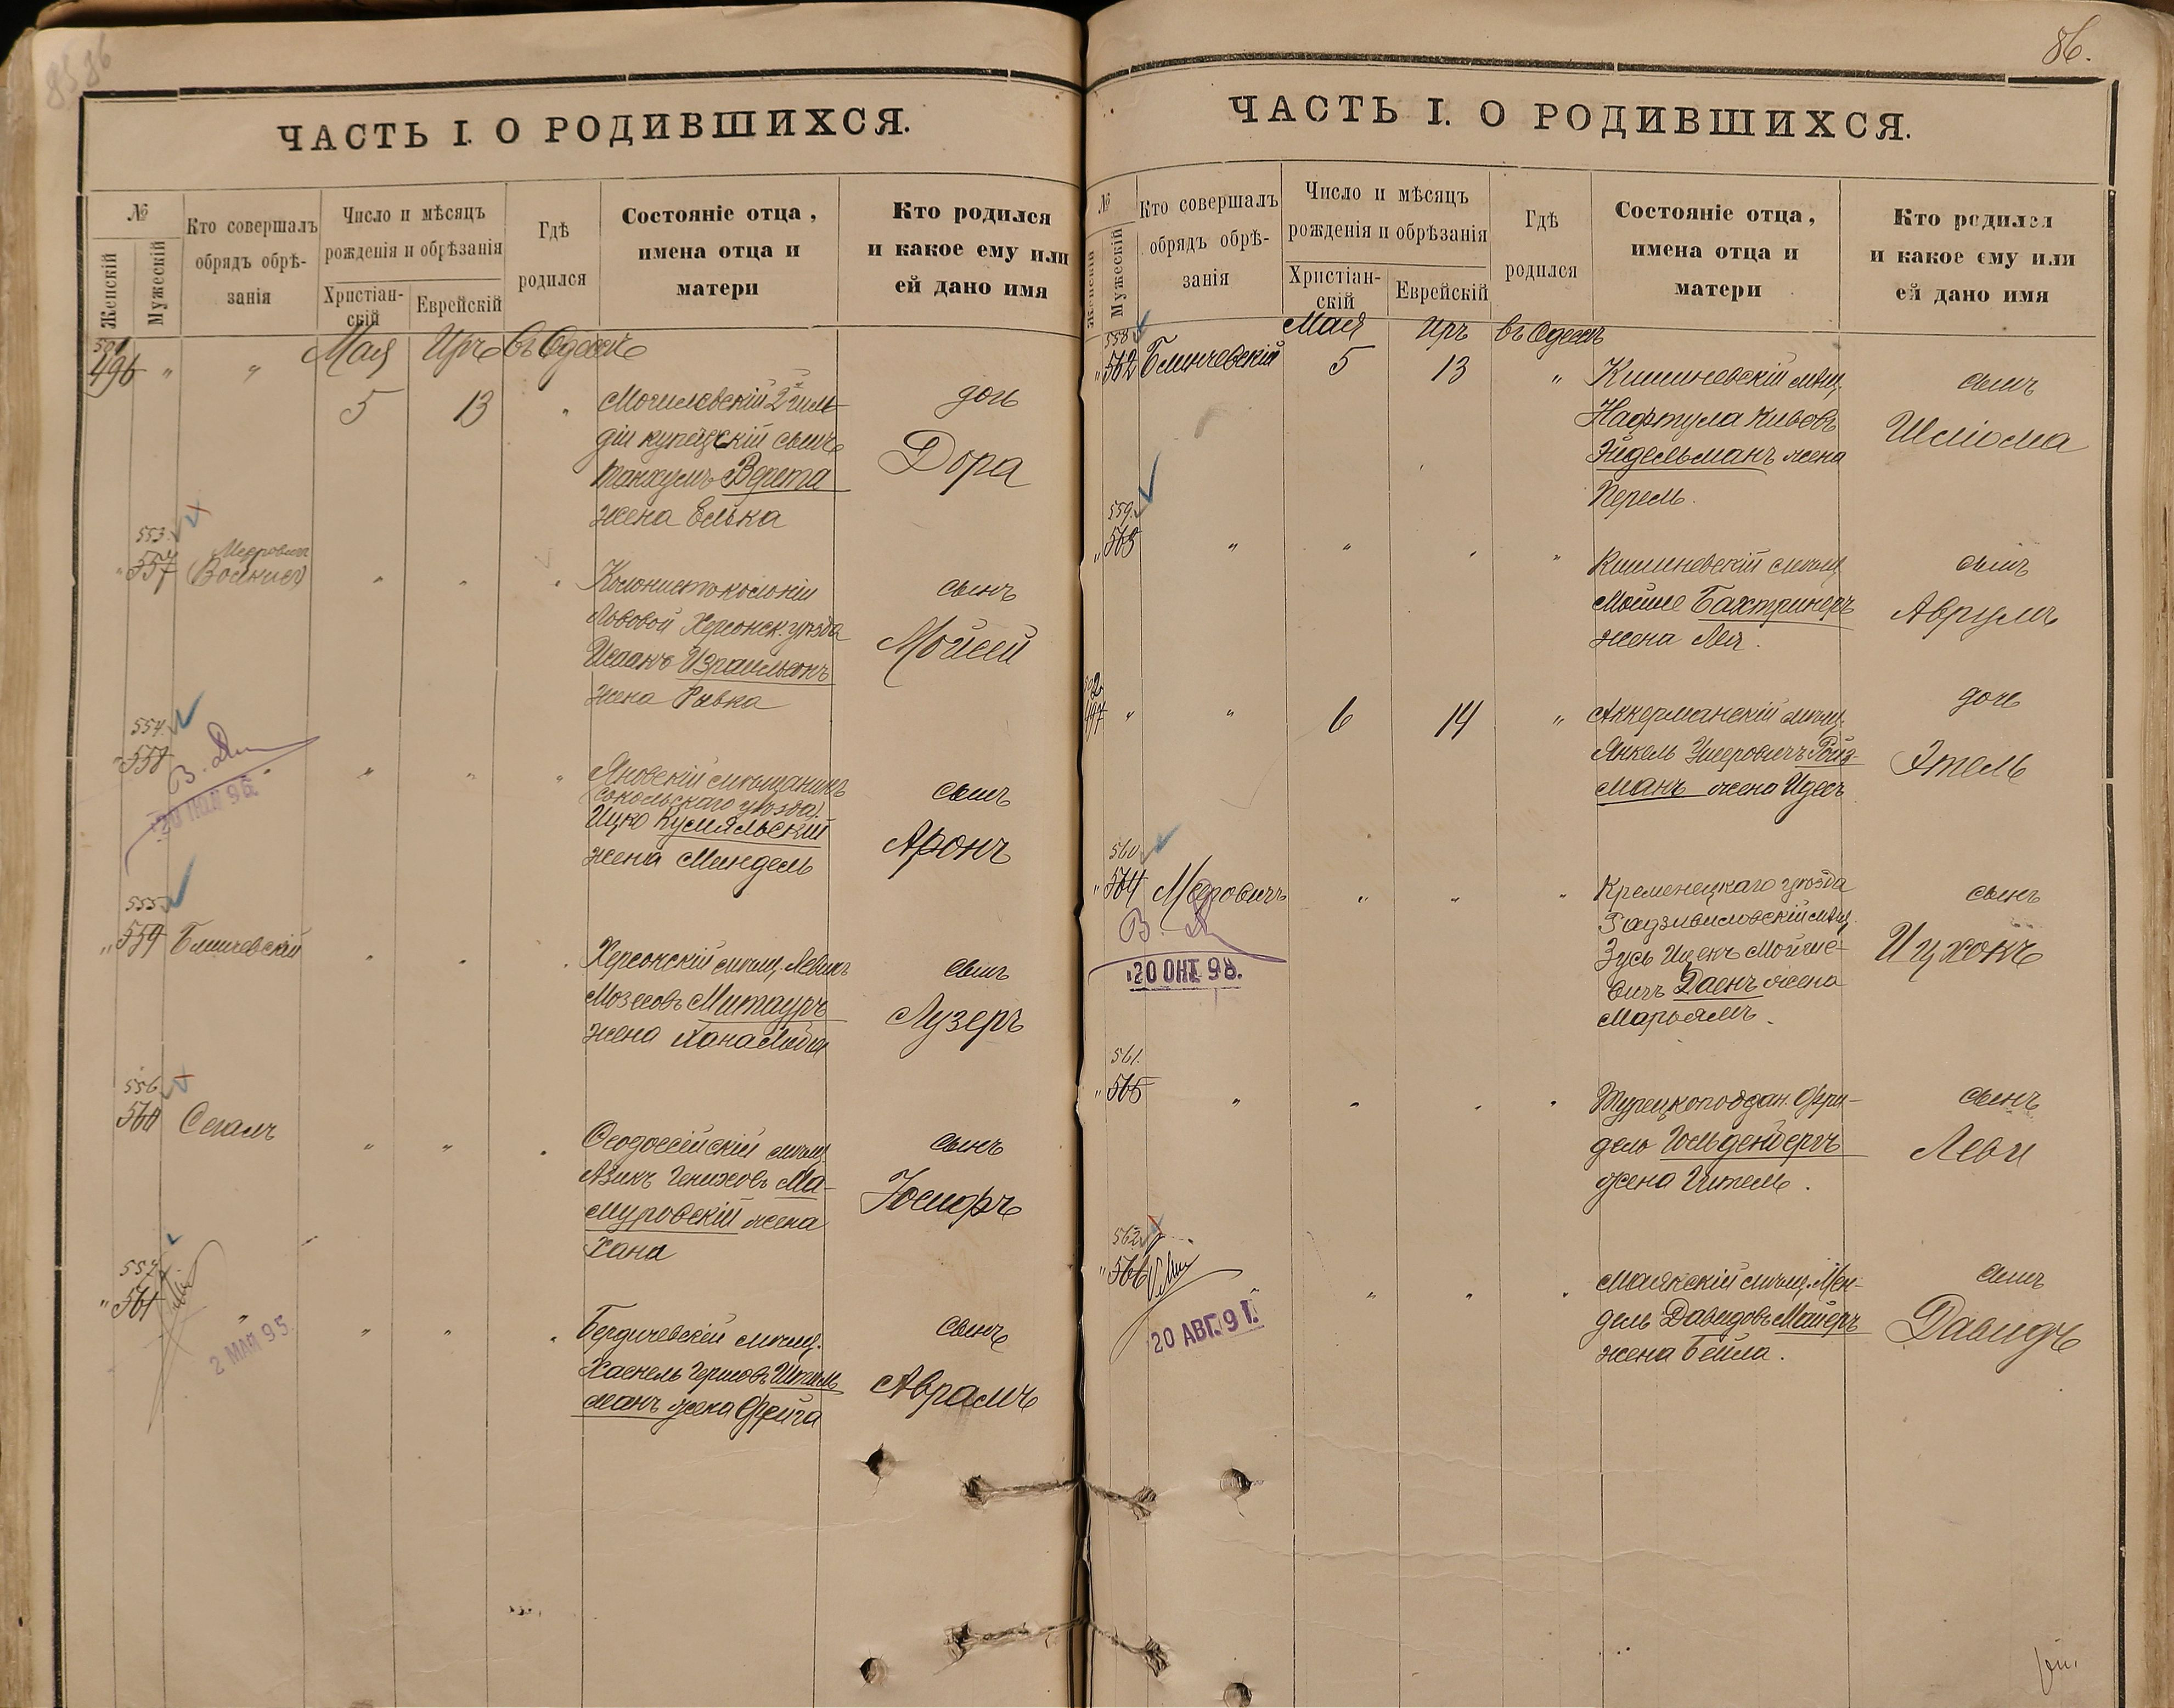 86.
ЧАСТЬ I. О РОДИВШИХСЯ.
№
Женскій
Мужескій
Кто совершалъ
обрядъ обрѣ-
занія
Число и мѣсяцъ
рожденія и обрѣзанія
Христіан-
скій
Еврейскій
Гдѣ
родился
Состояніе отца,
имена отца и
матери
Кто родился
и какое ему или
ей дано имя
501
496 " "
Мая Иръ въ Одессѣ
5 13 "
Могилевскій 2й гиль-
діи купецкій сынъ
Танхумъ Верета
жена Елька
дочь
Дора
553.
" 557
Мееровичъ
" " "
Колонистъ колоніи
Львовой Херсонск. уѣзда
Исаакъ Израильсонъ
жена Ривка
сынъ
Мойсей
554.
" 558 "
20 95
" " "
Яновскій мѣщанинъ
(Сокольскаго уѣзда)
Ицко Кумяльскій
жена Миндель
сынъ
Аронъ
555.
" 559 Блинчевскій
" " "
Херсонскій мѣщ. Левикъ
Мозесовъ Митауръ
жена Хана
сынъ
Лузеръ
556.
560 Сегалъ
" " "
Ѳеодосійскій мѣщ.
Азикъ Гениховъ Ма-
муровскій жена
Хана
сынъ
Іосифъ
557
" 561 "
2 МАЯ 95.
" " "
Бердичевскій мѣщ.
Хаскель Гершовъ Шпиль-
манъ жена Фейга
сынъ
Аврамъ
86.
ЧАСТЬ I. О РОДИВШИХСЯ.
№
Женскій
Мужескій
Кто совершалъ
обрядъ обрѣ-
занія
Число и мѣсяцъ
рожденія и обрѣзанія
Христіан-
скій
Еврейскій
Гдѣ
родился
Состояніе отца,
имена отца и
матери
Кто родился
и какое ему или
ей дано имя
558
" 562 Блинчевскій
Мая Иръ въ Одессѣ
5 13 "
Кишиневскій мѣщ.
Нафтула Кивовъ
Эйдельманъ жена
Перель.
сынъ
Шліома
559.
" 563 "
" " "
Кишиневскій мѣщ.
Мойше Бахтринеръ
жена Лея.
сынъ
Аврумъ
502
497 " "
6 14 "
Аккерманскій мѣщ.
Янкель Умеровичъ Ройз-
манъ жена Идесъ
дочь
Этель
560
" 564 Мееровичъ
20 ОКТ. 98.
" " "
Кременецкаго уѣзда
Радзивиловскій мѣщ.
Зусь Ицекъ Мойше-
вичъ Даенъ жена
Марьямъ.
сынъ
Ицхокъ
561.
" 565 "
" " "
Турецкоподдан. Фри-
дель Гольденбергъ
жена Гитель.
сынъ
Леви
562.
" 566
20 АВГ. 91.
" " "
Маякскій мѣщ. Мен-
дель Давидовъ Майеръ
жена Бейла.
сынъ
Давидъ